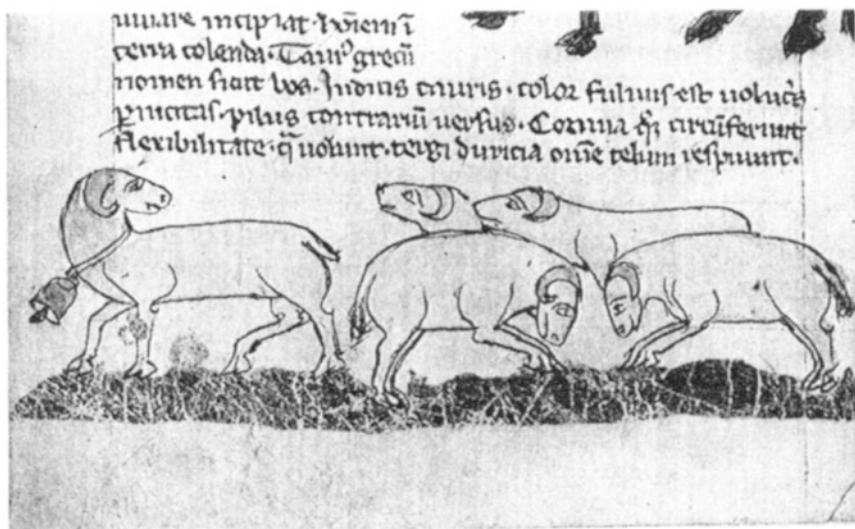 incipiat. hyemi i
terra colenda. Taurꝰ grecū
nomen sicut bos. Indicis tauris. color fuluus est uolucͥs
pnicitas. pilus contrariū uersus. Cornua circūferunt
flexibilitate. q̄ uolunt. tergi duricia om̄e telum respuunt.